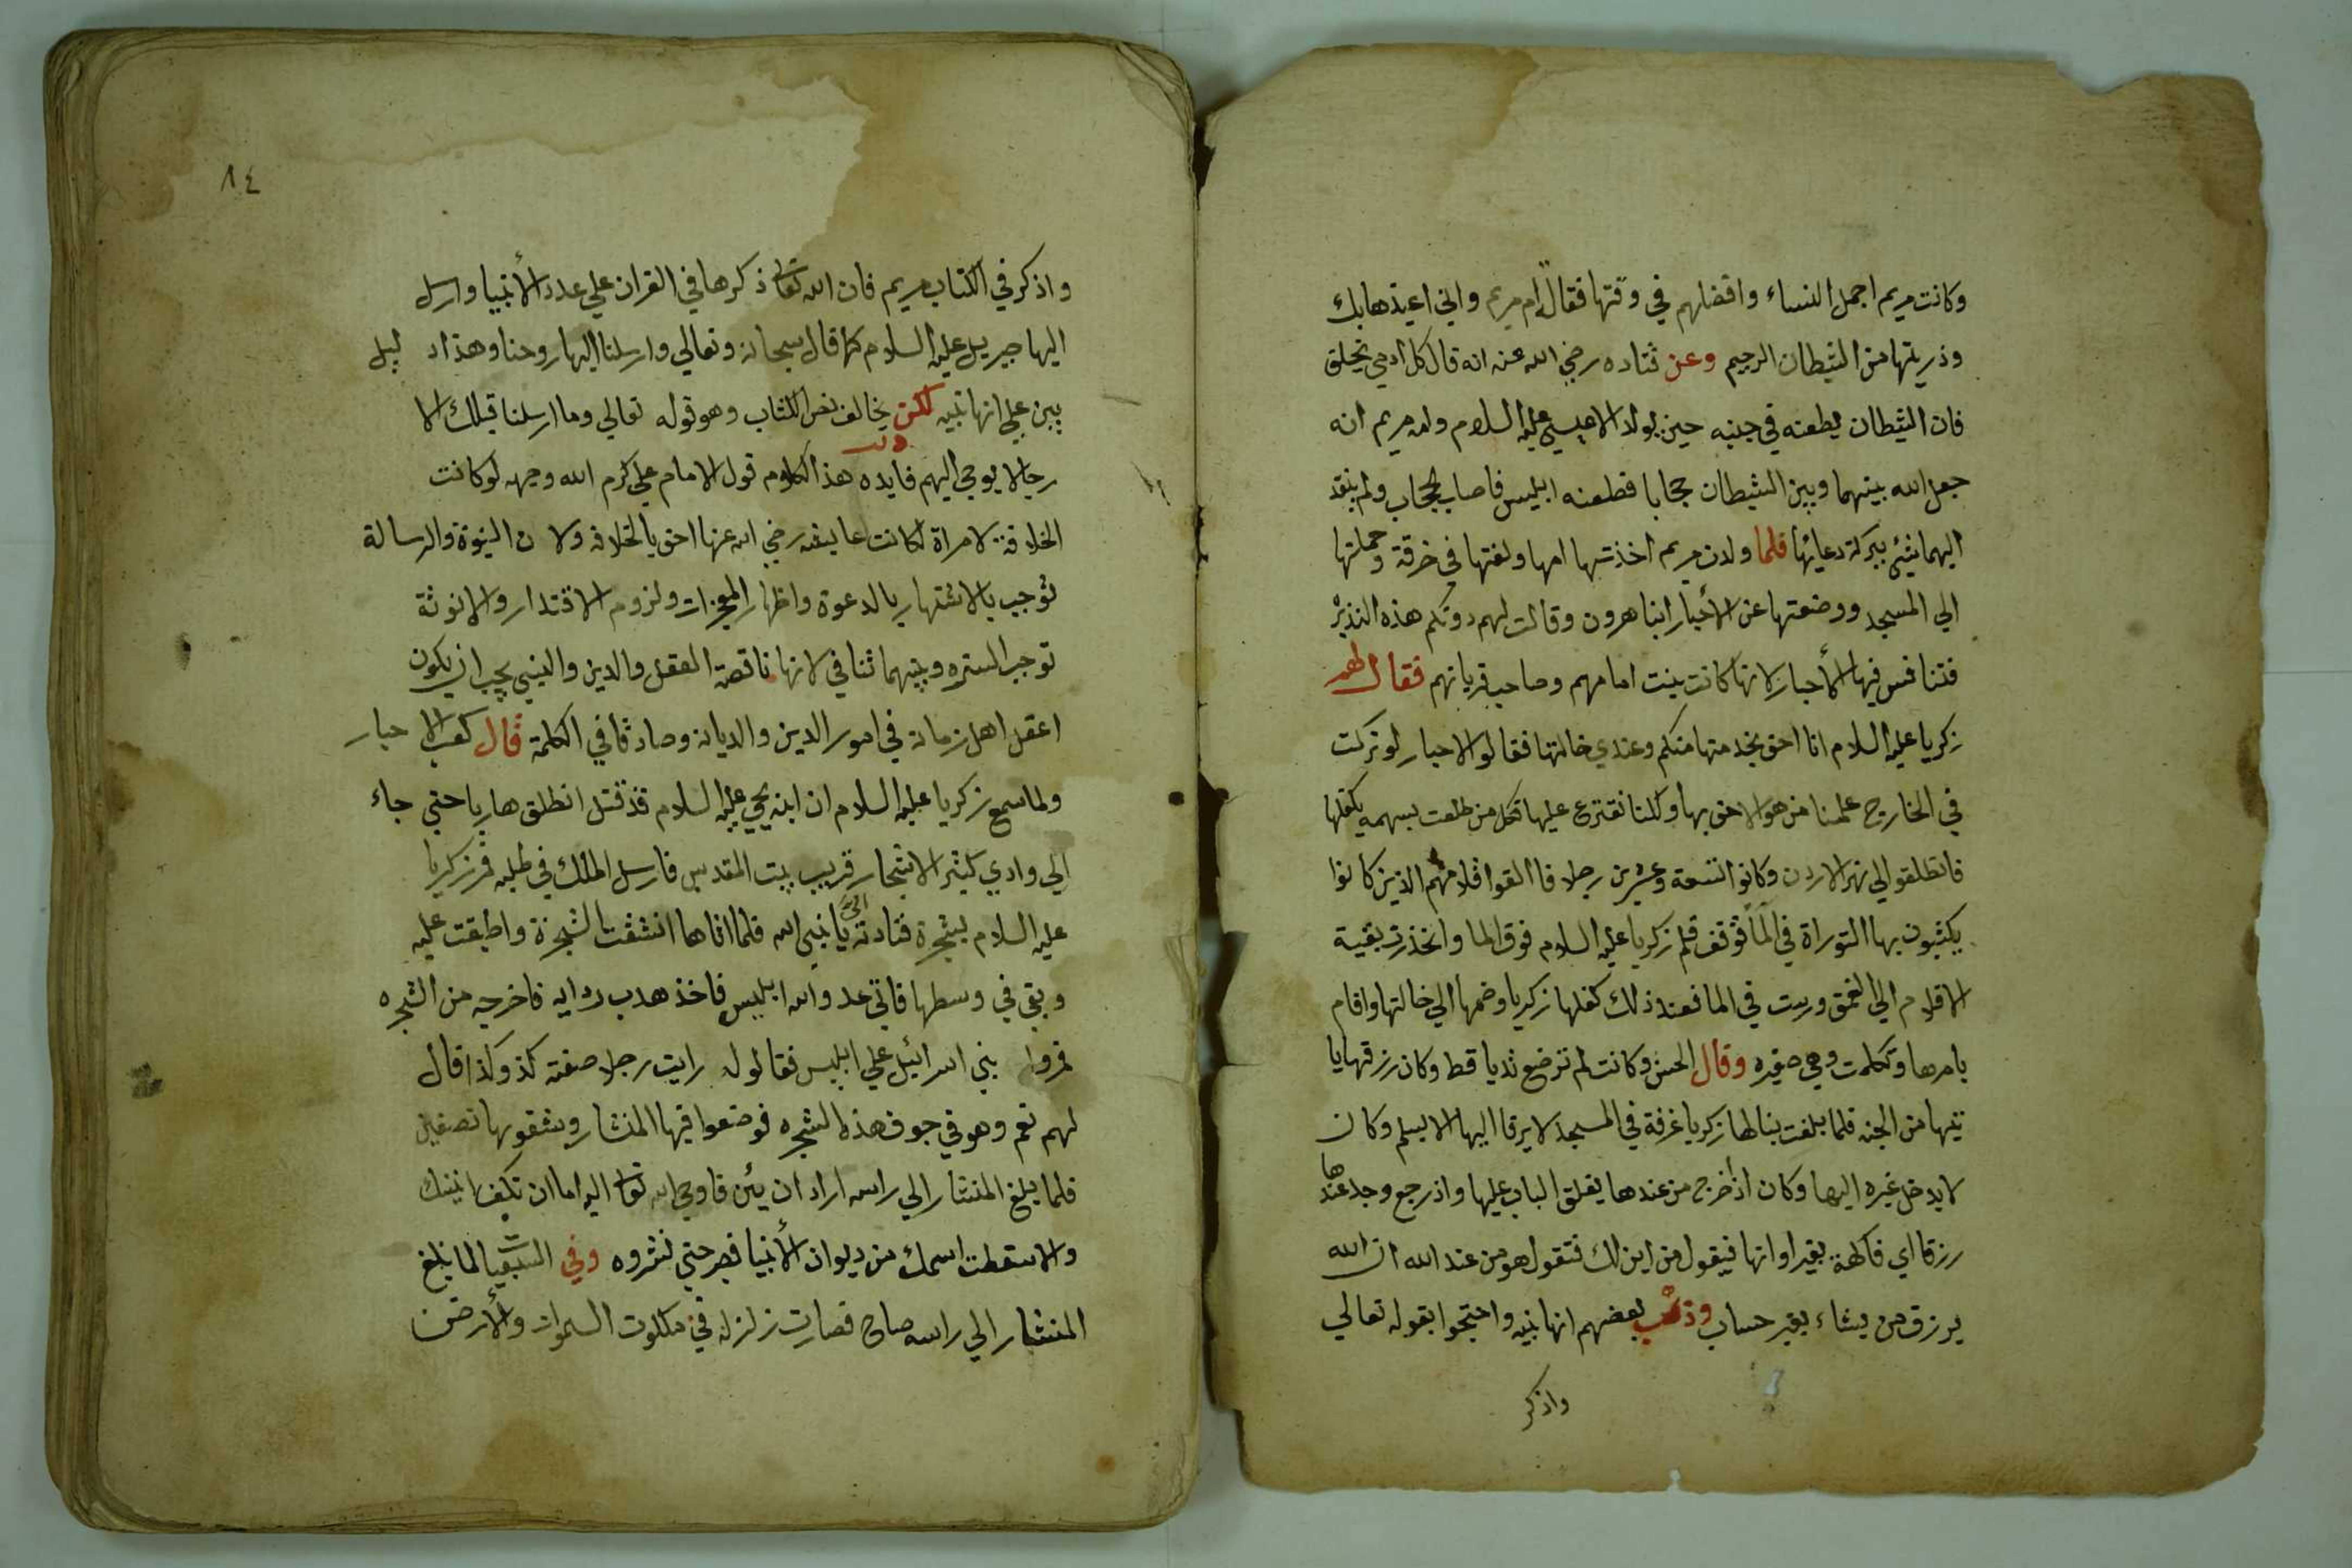 وكانت مريم اجمل النساء وافضلهم في وقتها فقال ام مريم واني اعيذها بك
وذريتها من الشيطان الرجيم وعن قتاده رضي الله عنه انه قال كل ادمي يخلق
فان الشيطان يطعنه في جنبه حين يولد الا عيسي عليه السلام وامه مريم انه
جعل الله بينهما وبين الشيطان حجابا فطعنه ابليس فاصاب الحجاب ولم ينفد
اليهما شئ ببركة دعائها فلما ولدن مريم اخذتها امها ولفتها في خرقة وحملتها
الي المسجد ووضعتها عن الأحبار ابنا هرون وقالت لهم دونكم هذه النذير
فتنافس فيها الأحبار لانها كانت بنت امامهم وصاحب قربانهم فقال لهم
زكريا عليه السلام انا احق بخدمتها منكم وعندي خالتها فقالوا الاحبار لو تركت
في الخارج علمنا من هو الاحق بها وكلنا نقترع عليها فكل من طلعت بسهمه يكفلها
فانطلقو الي نهر الاردن وكانوا تسعة وعشرين رجلا فاالقوا اقلامهم الذين كانوا
يكتبون بها التوراة في الما فوقف قلم زكريا عليه السلام فوق الما وانحذرت بقية
الاقلام الي الغمق ورست في الما فعند ذلك كفلها زكريا وضمها الي خالتها واقام
بامرها وتكلمت وهي صغيره وقال الحسن وكانت لم ترضع ثديا قط وكان رزقها يا
تيها من الجنه فلما بلغت بنا لها زكريا غرفة في المسجد لا يرقا اليها الا بسلم وكان
لا يدخل غيره اليها وكان اذ أخرج من عندها يغلق الباب عليها واذ رجع وجد عندها
رزقا اي فاكهة بغير اوانها فيقول من اين لك فتقول هو من عند الله ان الله
يرزق من يشاء بغير حساب وذهب بعضهم انها نبيه واحتجوا بقوله تعالي
واذكر
٨٤
واذكر في الكتاب مريم فان الله تعا ذكرها في القران علي عدد الأنبيا وارسل
اليها جبريل عليه السلام كما قال سبحانه وتعالي وارسلنا اليها روحنا وهذا دليل
يبين علي انها نبيه لكن يخالف نص الكتاب وهو قوله تعالي وما ارسلنا قبلك الا
رجالا يوحي اليهم فايده هذا الكلام قول الامام علي كرم الله وجهه لو كانت
الخلافة لامراة لكانت عايشه رضي الله عنها احق بالخلافه ولان النبوة والرسالة
توجب بالاشتهار بالدعوة واظهار المعجزات ولزوم الاقتدار والانوثة
توجب الستره وبينهما تنافي لانها ناقصة العقل والدين والنبي يجب ان يكون
اعقل اهل زمانه في امور الدين والديانه وصادقا في الكلمة قال كعب الاحبار
ولما سمع زكريا عليه السلام ان ابنه يحيي عليه السلام قد قتل انطلق هاربا حتي جاء
الي وادي كثير الاشجار قريب بيت المقدس فارسل الملك في طلبه فمر زكريا
عليه السلام بشجرة فنادته الي يا نبي الله فلما اتاها انشقت الشجرة واطبقت عليه
وبقي في وسطها فاتي عدو الله ابليس فاخذ هدب ردايه فاخرجه من الشجره
فمروا بني اسرائيل علي ابليس فقالو له رايت رجلا صفته كذ وكذا قال
لهم نعم وهو في جوف هذه الشجره فوضعوا فيها المنشار وشقوها نصفين
فلما بلغ المنشار الي راسه اراد ان يئن فاوحي الله تعا اليه اما ان تكف انينك
والا سقطت اسمك من ديوان الأنبيا فصبر حتي نشروه وفي لما بلغ
المنشار الي راسه صاح فصارت زلزله في ملكوت السموات والأرض